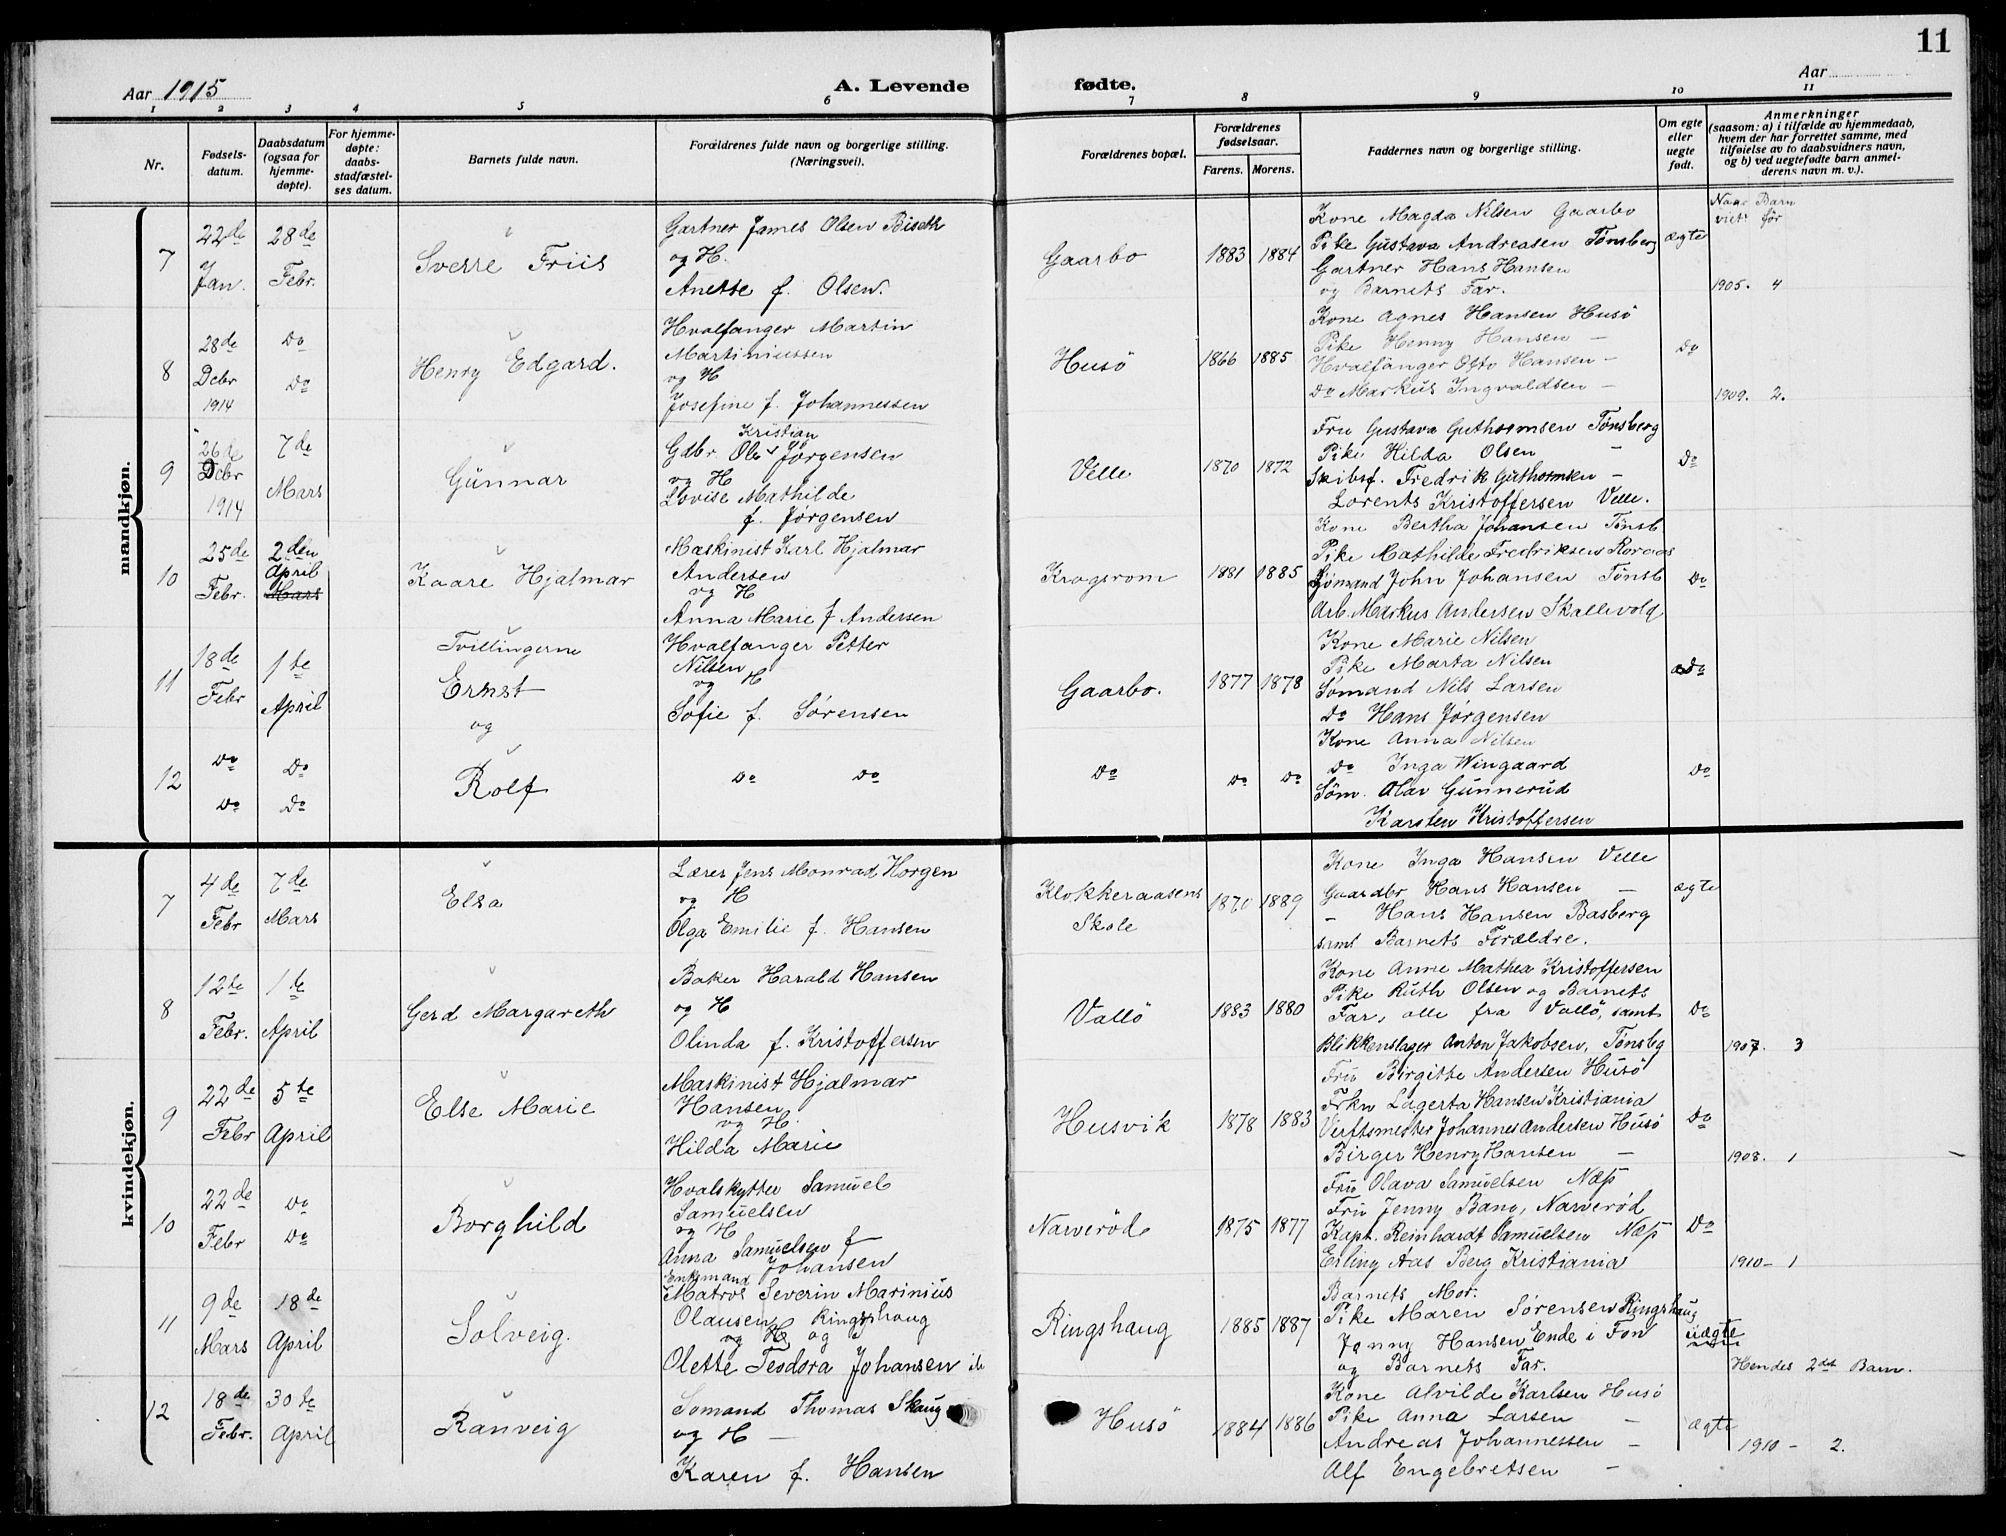 11
Aar 1915
A. Levende fødte.
Aar
1 2 3 4 5 6 7 8 9 10 11
Nr.
Fødsels-
datum.
Daabsdatum
(ogsaa for
hjemme-
døpte).
For hjemme-
døpte:
daabs-
stadfæstel-
ses datum.
Barnets fulde navn.
Forældrenes fulde navn og borgerlige stilling.
(Næringsvei).
Forældrenes bopæl.
Forældrenes
fødselsaar.
Farens. Morens.
Faddernes navn og borgerlige stilling.
Om egte
eller
uegte
født.
Anmerkninger
(saasom: a) i tilfælde av hjemmedaab,
hvem der har forrettet samme, med
tilføielse av to daabsvidners navn,
og b) ved uegtefødte barn anmel-
derens navn m. v.).
Naar Barn
viet før
mandkjøn.
7
22de
Jan.
28de
Febr.
Sverre Friis
Gartner James Olsen Biseth
og H.
Anette f. Olsen.
Gaarbo
1883 1884
Kone Magda Nilsen Gaarbo
Pike Gustava Andreasen Tønsberg
Gartner Hans Hansen
og Barnets Far.
ægte
1905. 4
8
28de
Debr
1914
Do
Do
Henry Edgard.
Hvalfanger Martin
Martiniussen
og H
Josefine f. Johannessen
Husö
1866 1885
Kone Agnes Hansen Husö
Pike Henny Hansen —
Hvalfanger Otto Hansen —
Do Markus Ingvaldsen —
Do
1909. 2.
9
26de
Debr
1914
7de
Mars
Gunnar
Kristian
Gdbr Ole Jørgensen
og H
Lovise Mathilde
f. Jørgensen
Velle
1870 1872
Fru Gustava Guthormsen Tønsberg
Pike Hilda Olsen —
Skibsf. Fredrik Guthormsen —
Lorents Kristoffersen Velle.
Do
10
25de
Febr.
2den
April
Mars
Kaare Hjalmar
Maskinist Karl Hjalmar
Andersen
og H
Anna Marie f Andersen
Krogsrom
1881 1885
Kone Bertha Johansen Tønsb
Pike Mathilde Fredriksen Roraas
Sjømand John Johansen Tønsb
Arb. Markus Andersen Skallevold
Do
11
18de
Febr
1te
April
Tvillingerne
Ernst
og
Hvalfanger Petter
Nilsen
og H
Sofie f. Sørensen
Gaarbo.
1877 1878
Kone Marie Nilsen
Pike Marta Nilsen
Sømand Nils Larsen
Do Hans Jørgensen
Do
12
Do
Do
Do
Do
Rolf
Do Do
Do
Do Do
Kone Anna Nilsen
Do Inga Wingaard
Søm. Olav Gunnerud
Karsten Kristoffersen
Do
kvindekjøn.
7
4de
Febr
7de
Mars
Elsa
Lærer Jens Monrad Horgen
og H
Olga Emilie f. Hansen
Klokkeraasens
Skole
1870 1889
Kone Inga Hansen Velle
Gaardbr Hans Hansen —
— Hans Hansen Basberg
samt Barnets Forældre.
ægte
8
12te
Febr.
1te
April
Gerd Margareth
Baker Harald Hansen
og H
Olinda f. Kristoffersen
Vallö
1883 1880
Kone Anne Mathea Kristoffersen
Pike Ruth Olsen og Barnets
Far, alle fra Vallö, samt
Blikkenslager Anton Jakobsen, Tønsbg
Do
1907. 3
9
22de
Febr
5te
April
Else Marie
Maskinist Hjalmar
Hansen
og H.
Hilda Marie
Husvik
1878 1883
Fru Birgitte Andersen Husö
Frkn Lagerta Hansen Kristiania
Verftsmester Johannes Andersen Husö
Birger Henry Hansen —
Do
1908. 1
10
22de
Febr
Do
Do
Borghild
Hvalskytter Samuel
Samuelsen
og H
Anna Samuelsen f
Johansen
Narverød
1875 1877
Fru Olava Samuelsen Næs
Fru Jenny Bang, Narverød
Kapt. Reinhardt Samuelsen Næs
Erling Aas Berg Kristiania
Do
1910 — 1
11
9de
Mars
18de
April
Solveig.
Enkemand
Matros Severin Marinius
Olausen Ringshaug
og H og
Olette Teodora Johansen
Ringshaug
1885 1887
Barnets Mor.
Pike Maren Sørensen Ringshaug
Jenny Hansen Ende i Fon
og Barnets Far.
uægte
Hendes 2det Barn.
12
18de
Febr.
30te
April
Ranveig
Sømand Thomas Skaug
og H —
Karen f. Hansen
Husö
1884 1886
Kone Alvilde Karlsen Husö
Pike Anna Larsen —
Andreas Johannessen —
Alf Engebretsen —
ægte
1910 — 2.